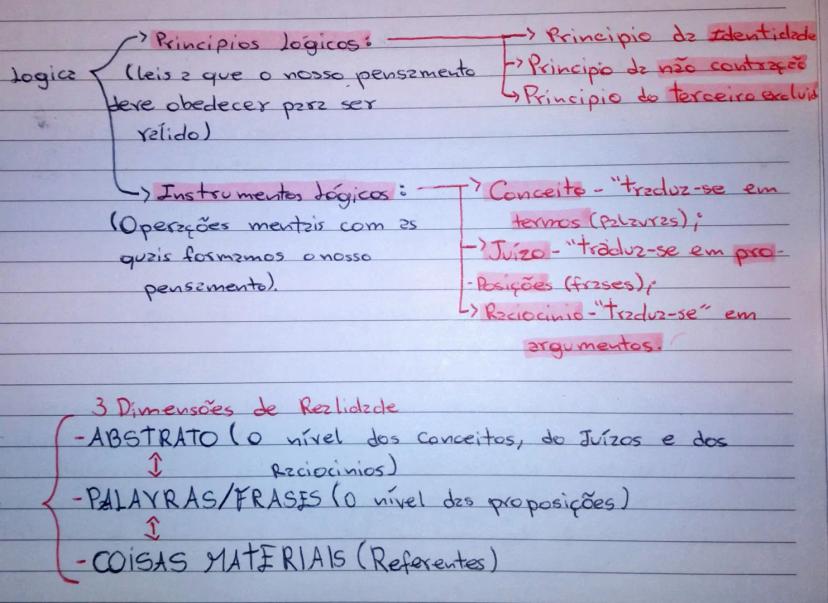 Principios lógicos: → Principio da Identidade
Logica (leis a que o nosso pensamento → Principio da não contração
deve obedecer para ser → Principio do terceiro excluid
válido)
→ Instrumentos Lógicos: → Conceito - "traduz-se em
(Operações mentais com as termos (palavras);
quais formamos o nosso → Juízo - "traduz-se em pro-
pensamento). - Posições (frases);
→ Raciocinio - "traduz-se" em
argumentos.
3 Dimensões de Realidade
- ABSTRATO (o nível dos conceitos, do Juízos e dos
Raciocinios)
- PALAVRAS/FRASES (o nível das proposições)
- COISAS MATERIAIS (Referentes)